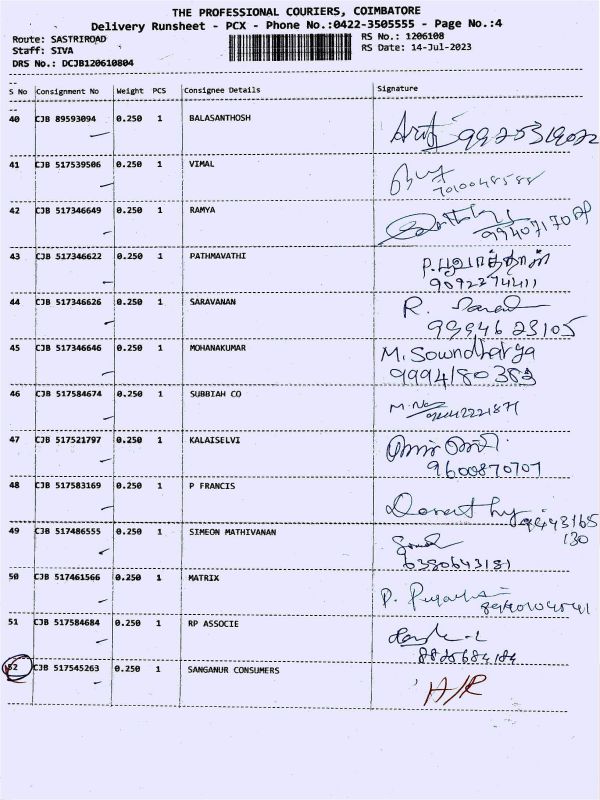 THE PROFESSIONAL COURIERS, COIMBATORE
Delivery Runsheet - PCX - Phone No.:0422-3505555 - Page No.:4
Route: SASTRIROAD RS No.: 1206108
Staff: SIVA RS Date: 14-Jul-2023
DRS No.: DCJB120610804
S No Consignment No Weight PCS Consignee Details Signature
40 CJB 89593094 0.250 1 BALASANTHOSH
41 CJB 517539506 0.250 1 VIMAL
7010048588
42 CJB 517346649 0.250 1 RAMYA
43 CJB 517346622 0.250 1 PATHMAVATHI
9092274411
44 CJB 517346626 0.250 1 SARAVANAN R.
99946 23105
45 CJB 517346646 0.250 1 MOHANAKUMAR M. Soundharya
9994180383
46 CJB 517584674 0.250 1 SUBBIAH CO
47 CJB 517521797 0.250 1 KALAISELVI
9600870707
48 CJB 517583169 0.250 1 P FRANCIS
49 CJB 517486555 0.250 1 SIMEON MATHIVANAN
130
6380643181
50 CJB 517461566 0.250 1 MATRIX
51 CJB 517584684 0.250 1 RP ASSOCIE
52 CJB 517545263 0.250 1 SANGANUR CONSUMERS A/R